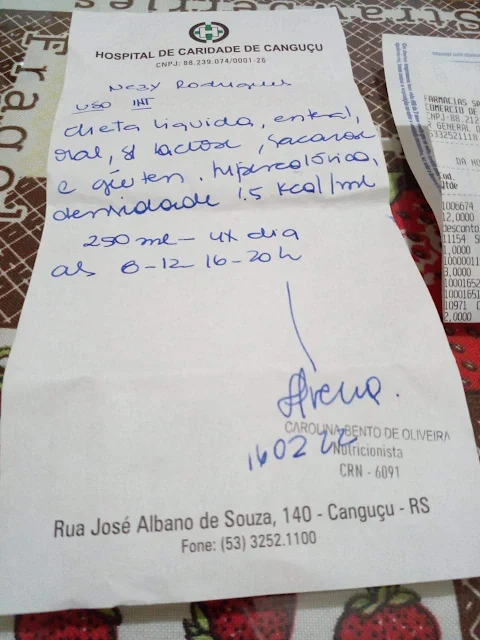 HOSPITAL DE CARIDADE DE CANGUÇU
CNPJ: 88.239.074/0001-26
Rodrigues
USO INT
dieta líquida, enteral,
oral, s/ lactose, sacarose
e glúten, hipercalórica,
densidade 1.5 kcal/ml
250 ml - 4x dia
às 8-12 16-20h
CAROLINA BENTO DE OLIVEIRA
160222
Nutricionista
CRN - 6091
Rua José Albano de Souza, 140 - Canguçu - RS
Fone: (53) 3252.1100
FARMACIAS SA
COMERCIO DE
CNPJ-88.212
GENERAL O
5332521118
DA NO
Qtde
1006674
12,0000
Desconto
11154 S
,0000
10000011
3,0000
10001652
10001651
10971
2,0000
Fragol